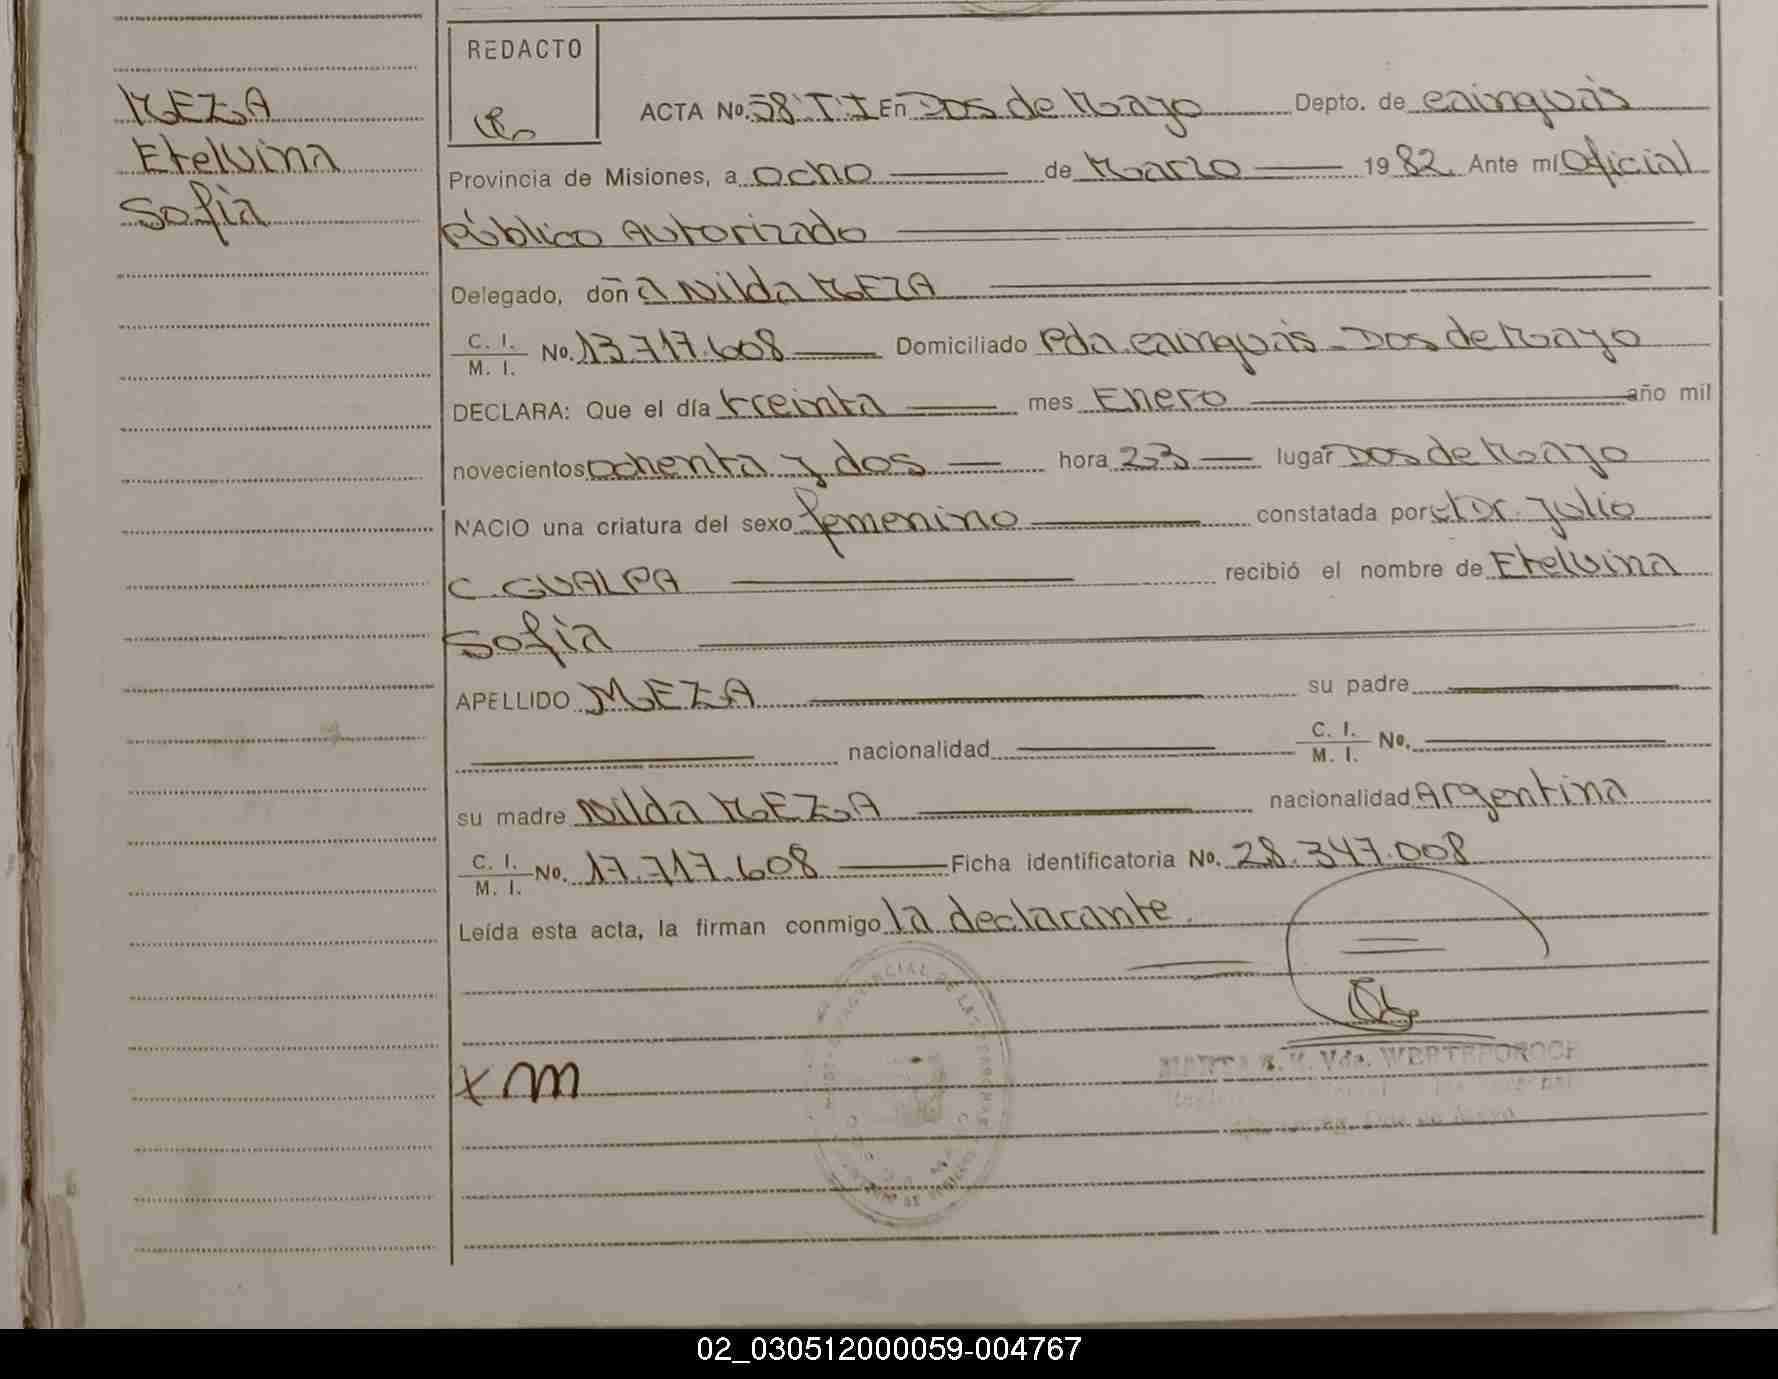 MEZA
Etelvina
Sofia
REDACTO
ACTA No. 58 T I En Dos de Mayo Depto. de cainguás
Provincia de Misiones, a ocho de Marzo 1982. Ante mí Oficial
Público Autorizado
Delegado, doñ a Nilda MEZA
C. I.
M. I. No. 13.717.608 Domiciliado Pda. cainguás - Dos de Mayo
DECLARA: Que el día treinta mes Enero año mil
novecientos ochenta y dos hora 23 lugar Dos de Mayo
NACIO una criatura del sexo femenino constatada por el Dr. Julio
C. GUALPA recibió el nombre de Etelvina
Sofia
APELLIDO MEZA su padre
nacionalidad C. I.
M. I. No.
su madre Nilda MEZA nacionalidad Argentina
C. I.
M. I. No. 17.717.608 Ficha identificatoria No. 28.347.008
Leída esta acta, la firman conmigo la declarante.
x m
Vda.
02_030512000059-004767